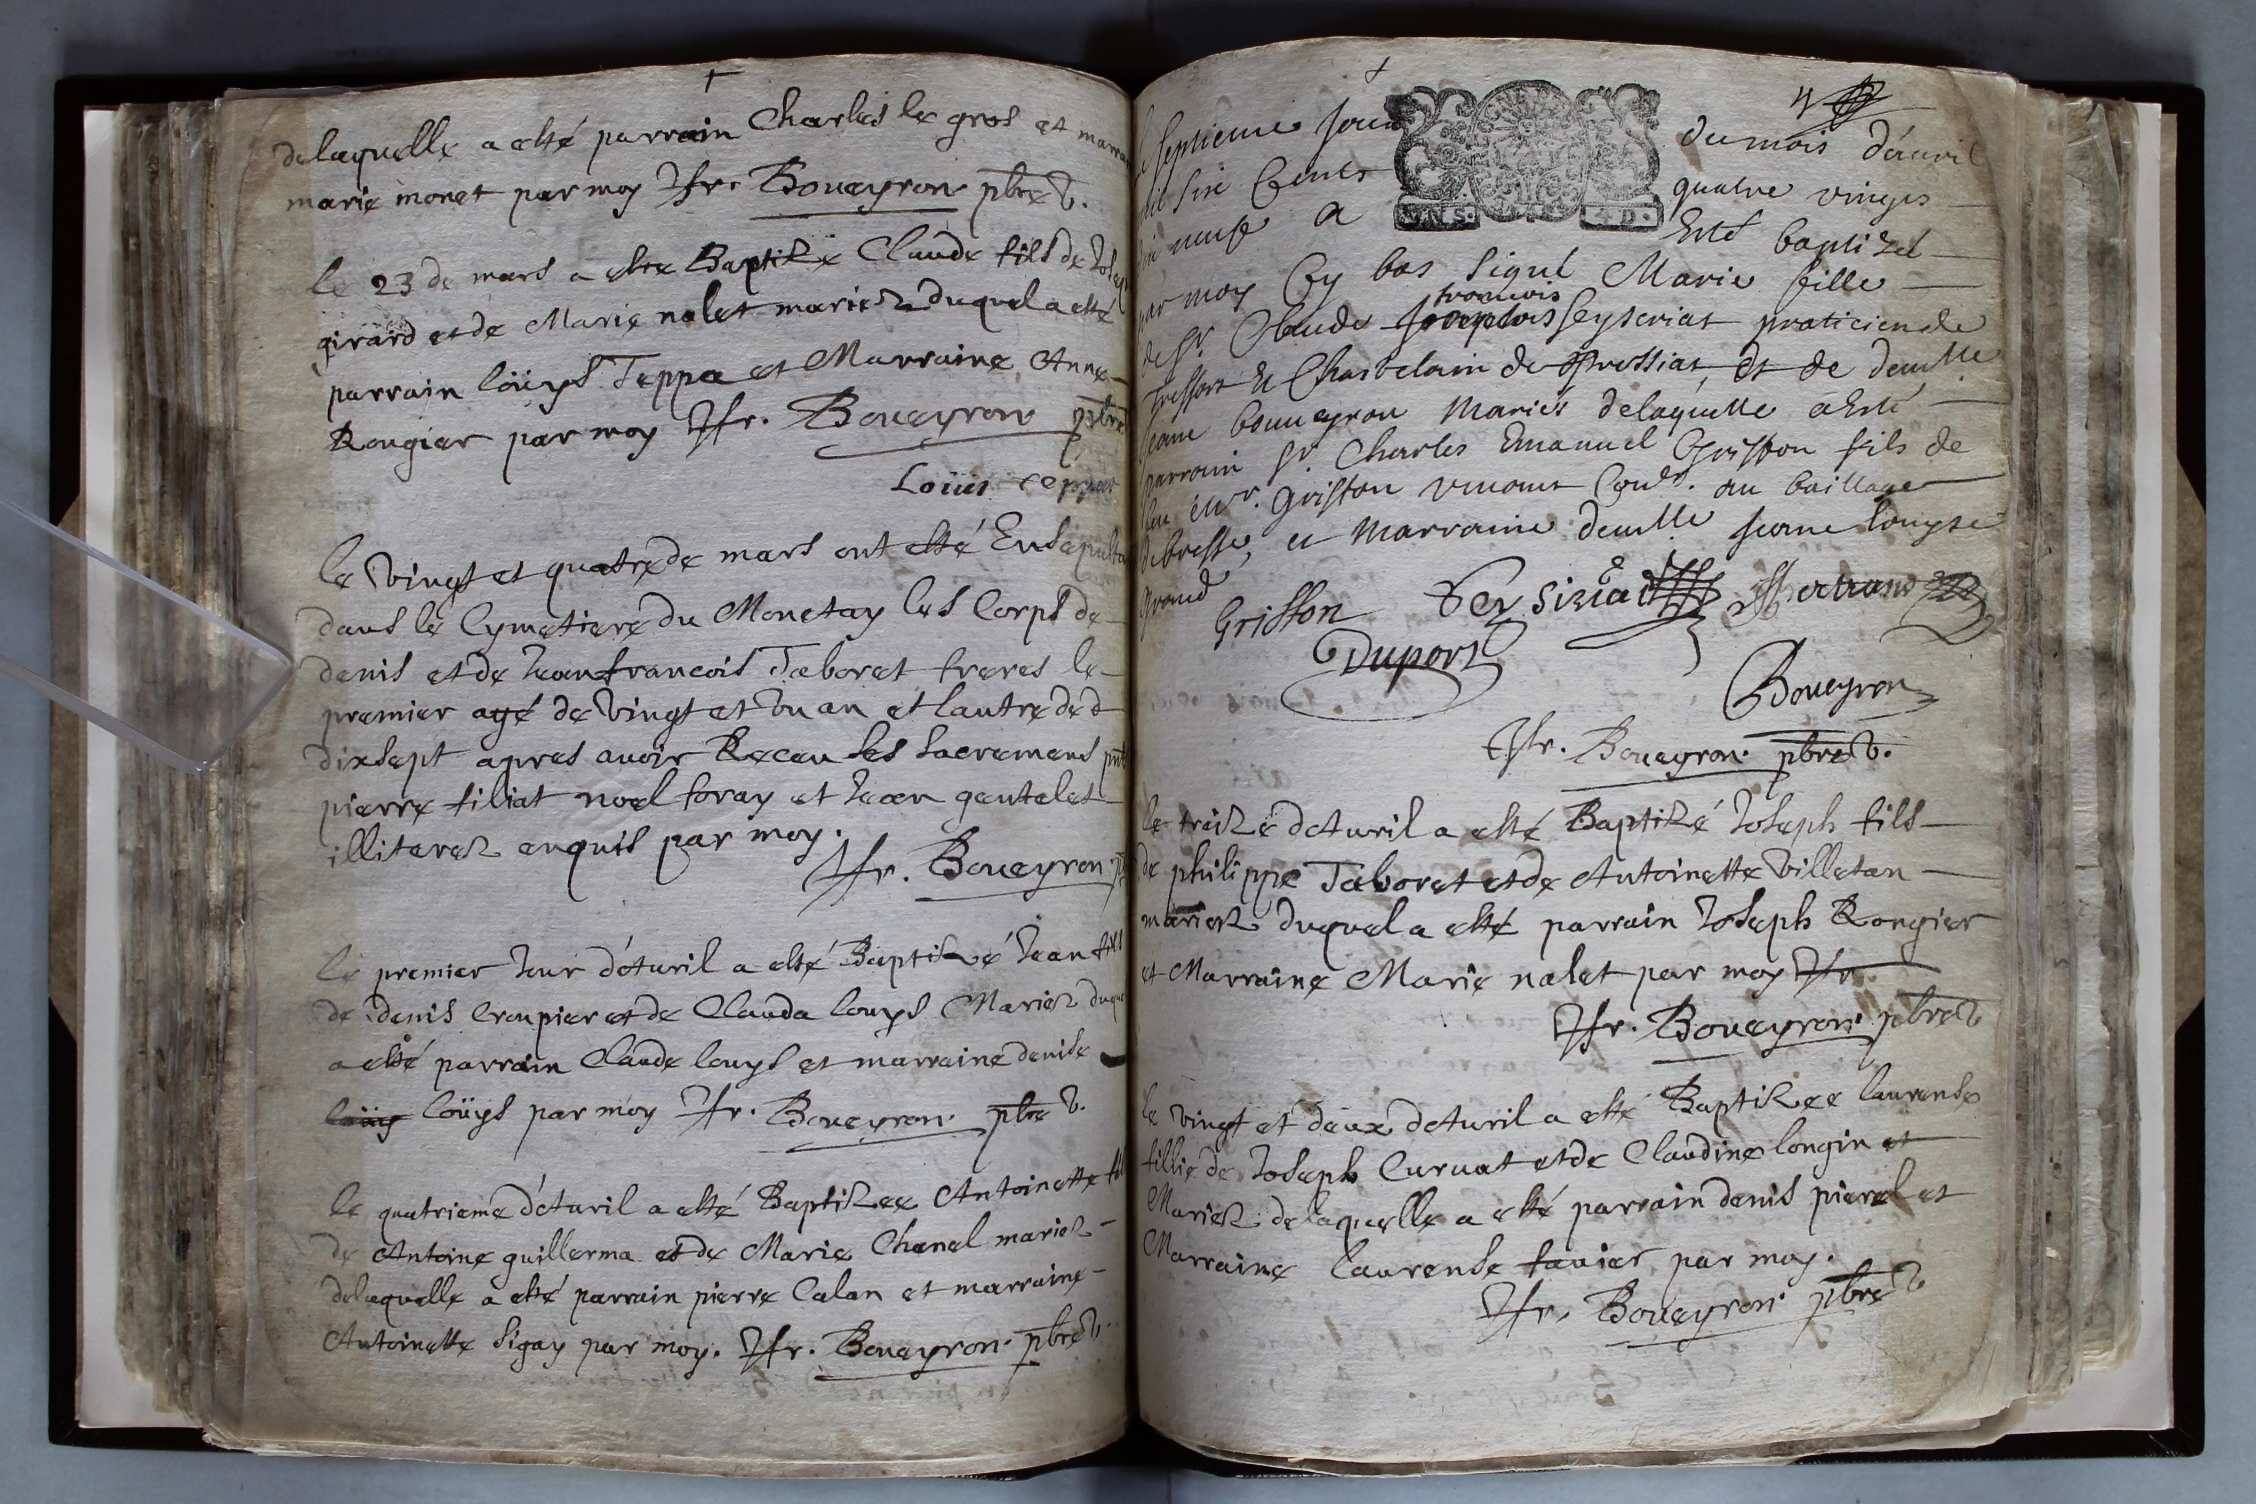 delaquelle a esté parrain Charles le gros et marra
marie monet par moy Jfr. Boueyron pbre V.
le 23 de mars a este Baptizé Claude fils de Josep
girard et de Marie nalet mariez duquel a esté
parrain loüys Teppa et Marraine Anne
Rougier par moy Jfr. Boueyron pbre
Loüis teppa
le vingt et quatre de mars ont esté Ensepultu
dans le Cymetiere du Monetay les Corps de
denis et de Jean francois Taboret freres le
premier agé de vingt et vn an et lautre de d
dixsept apres auoir Receu les Sacremens pnt
pierre filiat noel foray et Jean gentelet
illiterez enquis par moy.
Jfr. Boueyron p
le premier Jour d'Auril a esté Baptizé Jean fils
de denis Croupier et de Clauda louys Mariez duque
a esté parrain Claude louys et marraine denise
loüys loüys par moy Jfr. Boueyron pbre V.
le quatrieme d'Auril a esté Baptizee Antoinette fil
de Antoine guillerma et de Marie Chanel mariez
delaquelle a esté parrain pierre Calan et marraine
Antoinette Sigay par moy. Jfr. Boueyron. pbre V.
4
e septieme Jour du mois d'auril
mil Six Cents quatre vingts
dix neuf a Esté baptizeé
par moy Cy bas Signé Marie fille
de Sr. Claude francois Seyseriat praticien de
Treffort Et Chastelain de Pressiat, et de demlle
Jeane boueyron Mariés delaquelle a Esté
parrain Sr. Charles Emanuel Griffon fils de
feu Griffon viuant au bailliage
de bresse, et Marraine demlle Jeane louyse
grand
Griffon Seysiriat Bertrand
Duport
Boueyron
Jfr. Boueyron. pbre V.
le treize d'Auril a esté Baptizé Joseph fils
de philippe Taboret et de Antoinette Villetan
mariez duquel a esté parrain Joseph Rongier
et Marraine Marie nalet par moy Jfr.
Jfr. Boueyron. pbre V
le vingt et deux d'Auril a esté Baptizee laurense
fillie de Joseph Curuat et de Claudine longin et
Mariez delaquelle a esté parrain denis pierel et
Marraine laurense fauier par moy.
Jfr. Boueyron pbre V